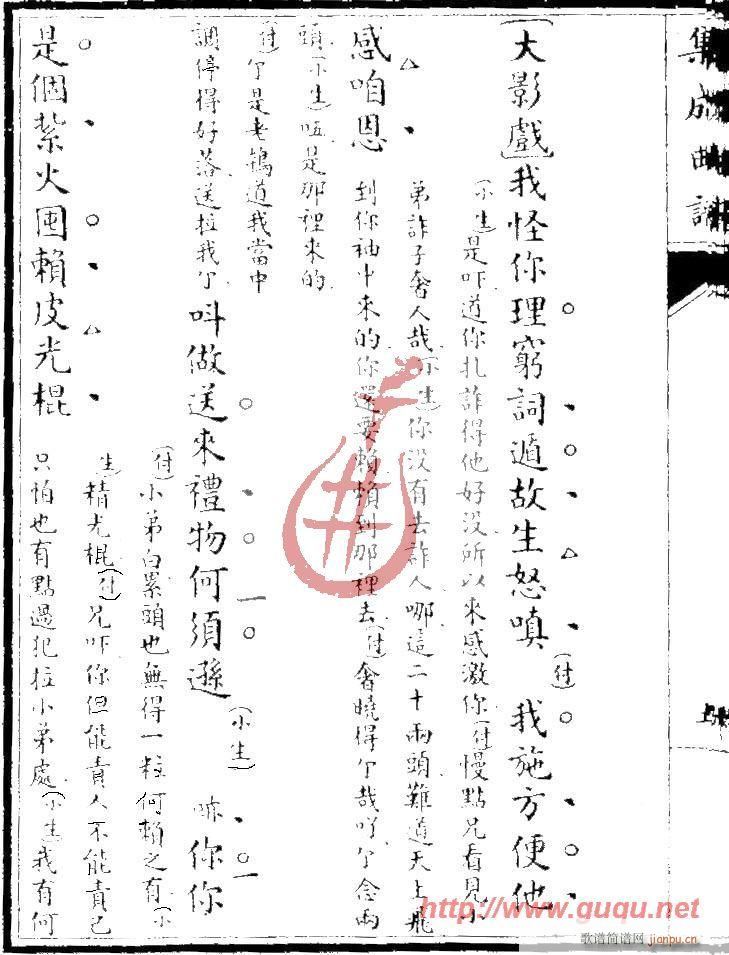 集成曲譜
[大影戲]我怪你理窮詞遁故生怒嗔(付)我施方便他
(小生)是吓道你扎詐得他好沒所以來感激你(付)慢點兄看見小
弟詐子奢人哉(小生)你沒有去詐人哪這二十兩頭難道天上飛
感咱恩到你袖中來的你還要賴賴到那裡去(付)奢曉得个哉吖个念兩
頭(小生)哑是那裡來的
(付)个是老鴇道我當中
調停得好落送拉我个叫做送來禮物何須遜(小生)嘛你你
(付)小弟白累頭也無得一粒何賴之有(小
生)精光棍(付)兄吓你但能責人不能責己
是個紮火囤賴皮光棍只怕也有點過犯拉小弟處(小生)我有何
http://www.guqu.net
歌谱简谱网 jianpu.cn